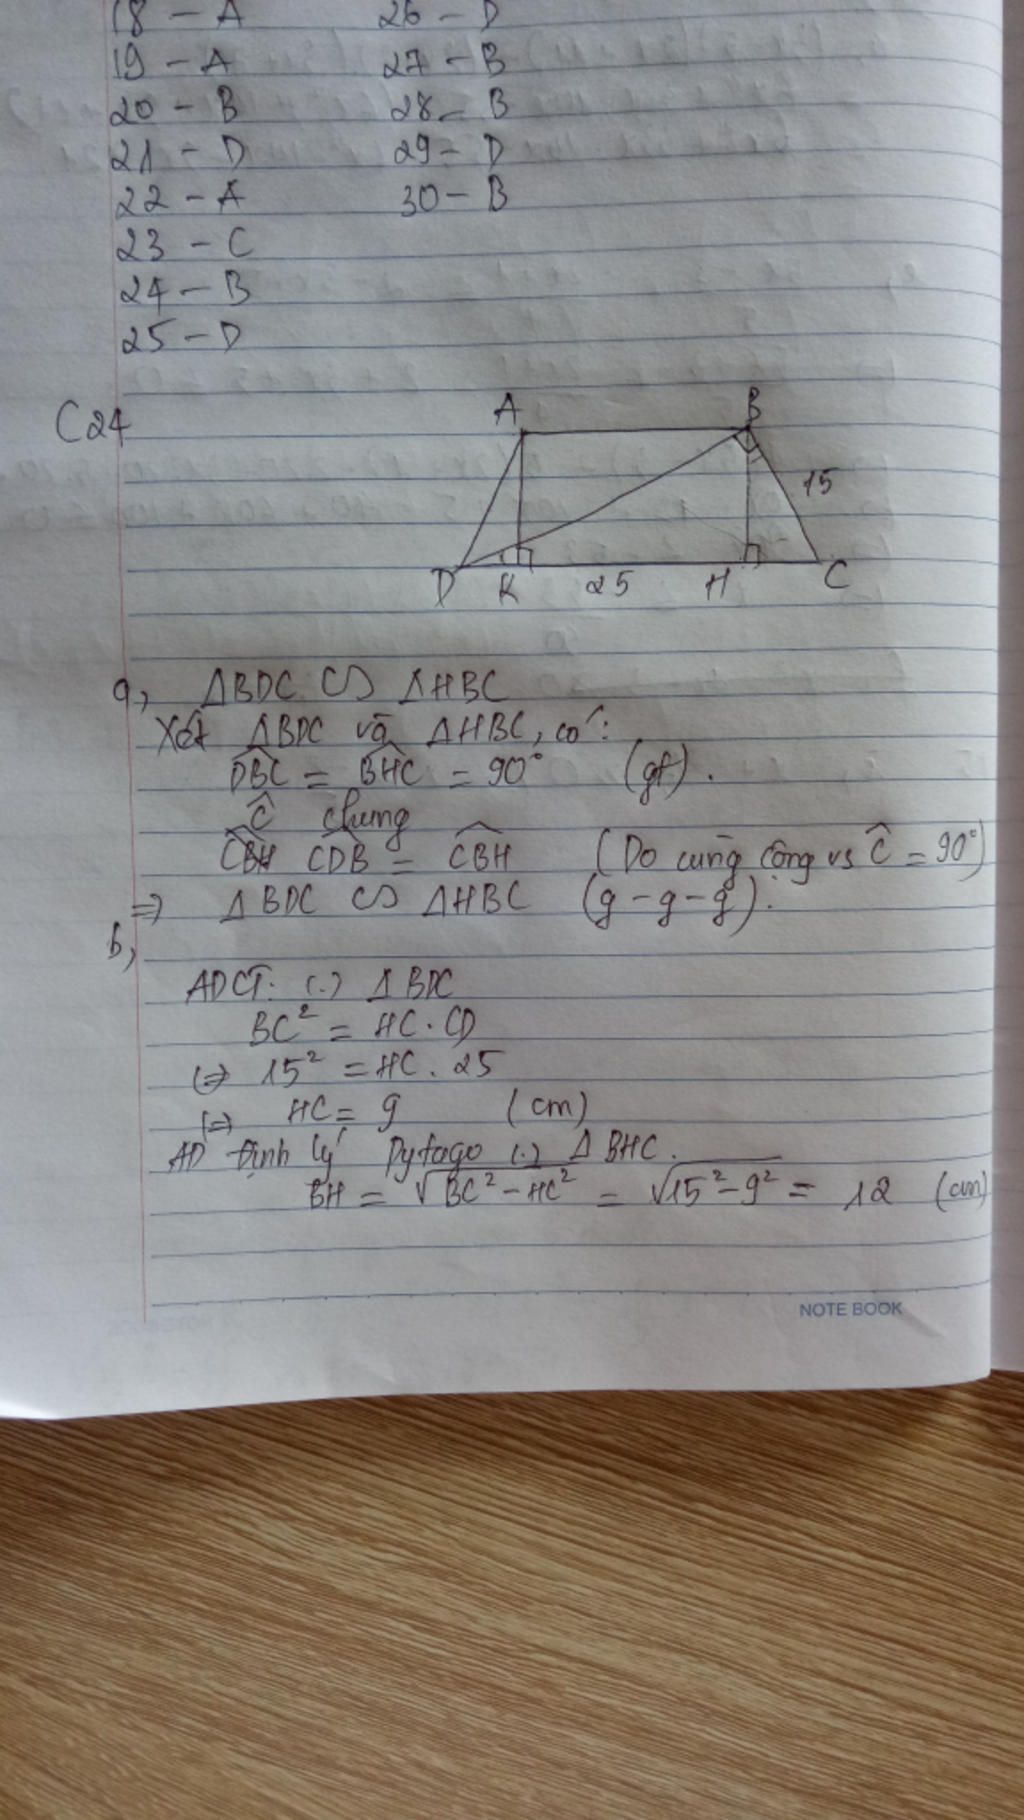 18 - A
19 - A
20 - B
21 - D
22 - A
23 - C
24 - B
25 - D
26 - D
27 - B
28 - B
29 - D
30 - B
C24
A B
15
D K 25 H C
a, ΔBDC ∽ ΔHBC
Xét ΔBDC và ΔHBC, có:
DBC = BHC = 90° (gt).
Ĉ chung
CBH CDB = CBH (Do cùng cộng vs Ĉ = 90°)
=> ΔBDC ∽ ΔHBC (g-g-g).
b,
ADCT: (.) ΔBDC
BC² = HC . CD
(=> 15² = HC . 25
(=> HC = 9 (cm)
AD Định lý Pytago (.) ΔBHC.
BH = √BC² - HC² = √15² - 9² = 12 (cm)
NOTE BOOK